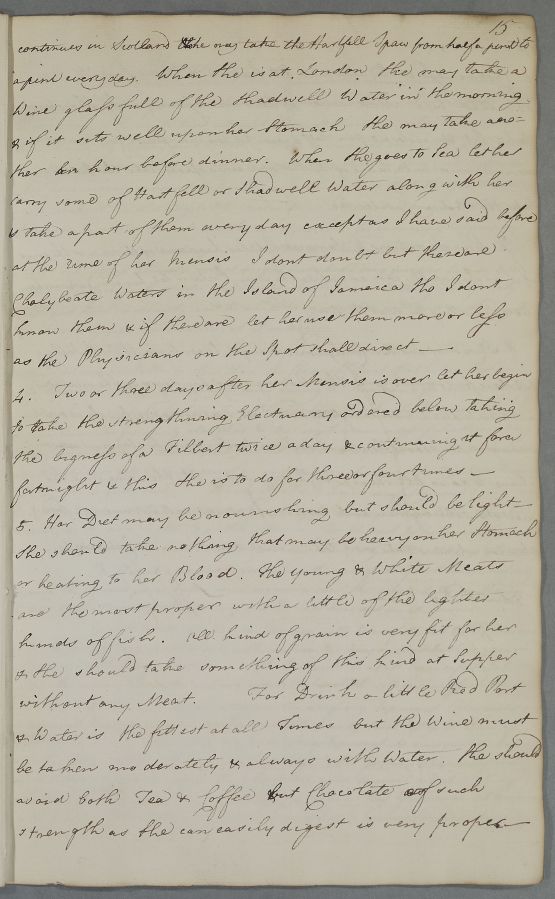 15
continues in Scotland she may take the Hartfell Spaw from half a pint to
a pint every day. When she is at London she may take a
Wine glass full of the Shadwell Water in the morning
& if it sits well upon her Stomach she may take ano=
ther an hour before dinner. When she goes to Sea let her
carry some of Hartfell or Shadwell Water along with her
& take a part of them every day except as I have said before
at the time of her Mensis I dont doubt but there are
Chalybeate Waters in the Island of Jamaica tho I dont
know them & if there are let her use them more or less
as the Physicians on the Spot shall direct —
4. Two or three days after her Mensis is over let her begin
to take the strengthning Electuary ordered below taking
the bigness of a Filbert twice a day & continuing it for a
fortnight & this she is to do for three or four times —
5. Her Diet may be nourishing but should be light
She should take nothing that may be heavy on her Stomach
or heating to her Blood. The young & White Meats
are the most proper with a little of the lighter
kinds of fish. All kind of grain is very fit for her
& she should take something of this kind at Supper
without any Meat. For Drink a little Red Port
& Water is the fittest at all Times but the Wine must
be taken moderately & always with Water. She should
avoid both Tea & Coffee but Chocolate of such
strength as she can easily digest is very proper —